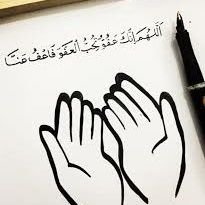 اَللّٰهُمَّ اِنَّكَ عَفُوٌّ تُحِبُّ الْعَفْوَ فَاعْفُ عَنَّا